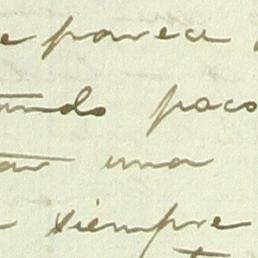 e parece
ando poco
ar una
siempre